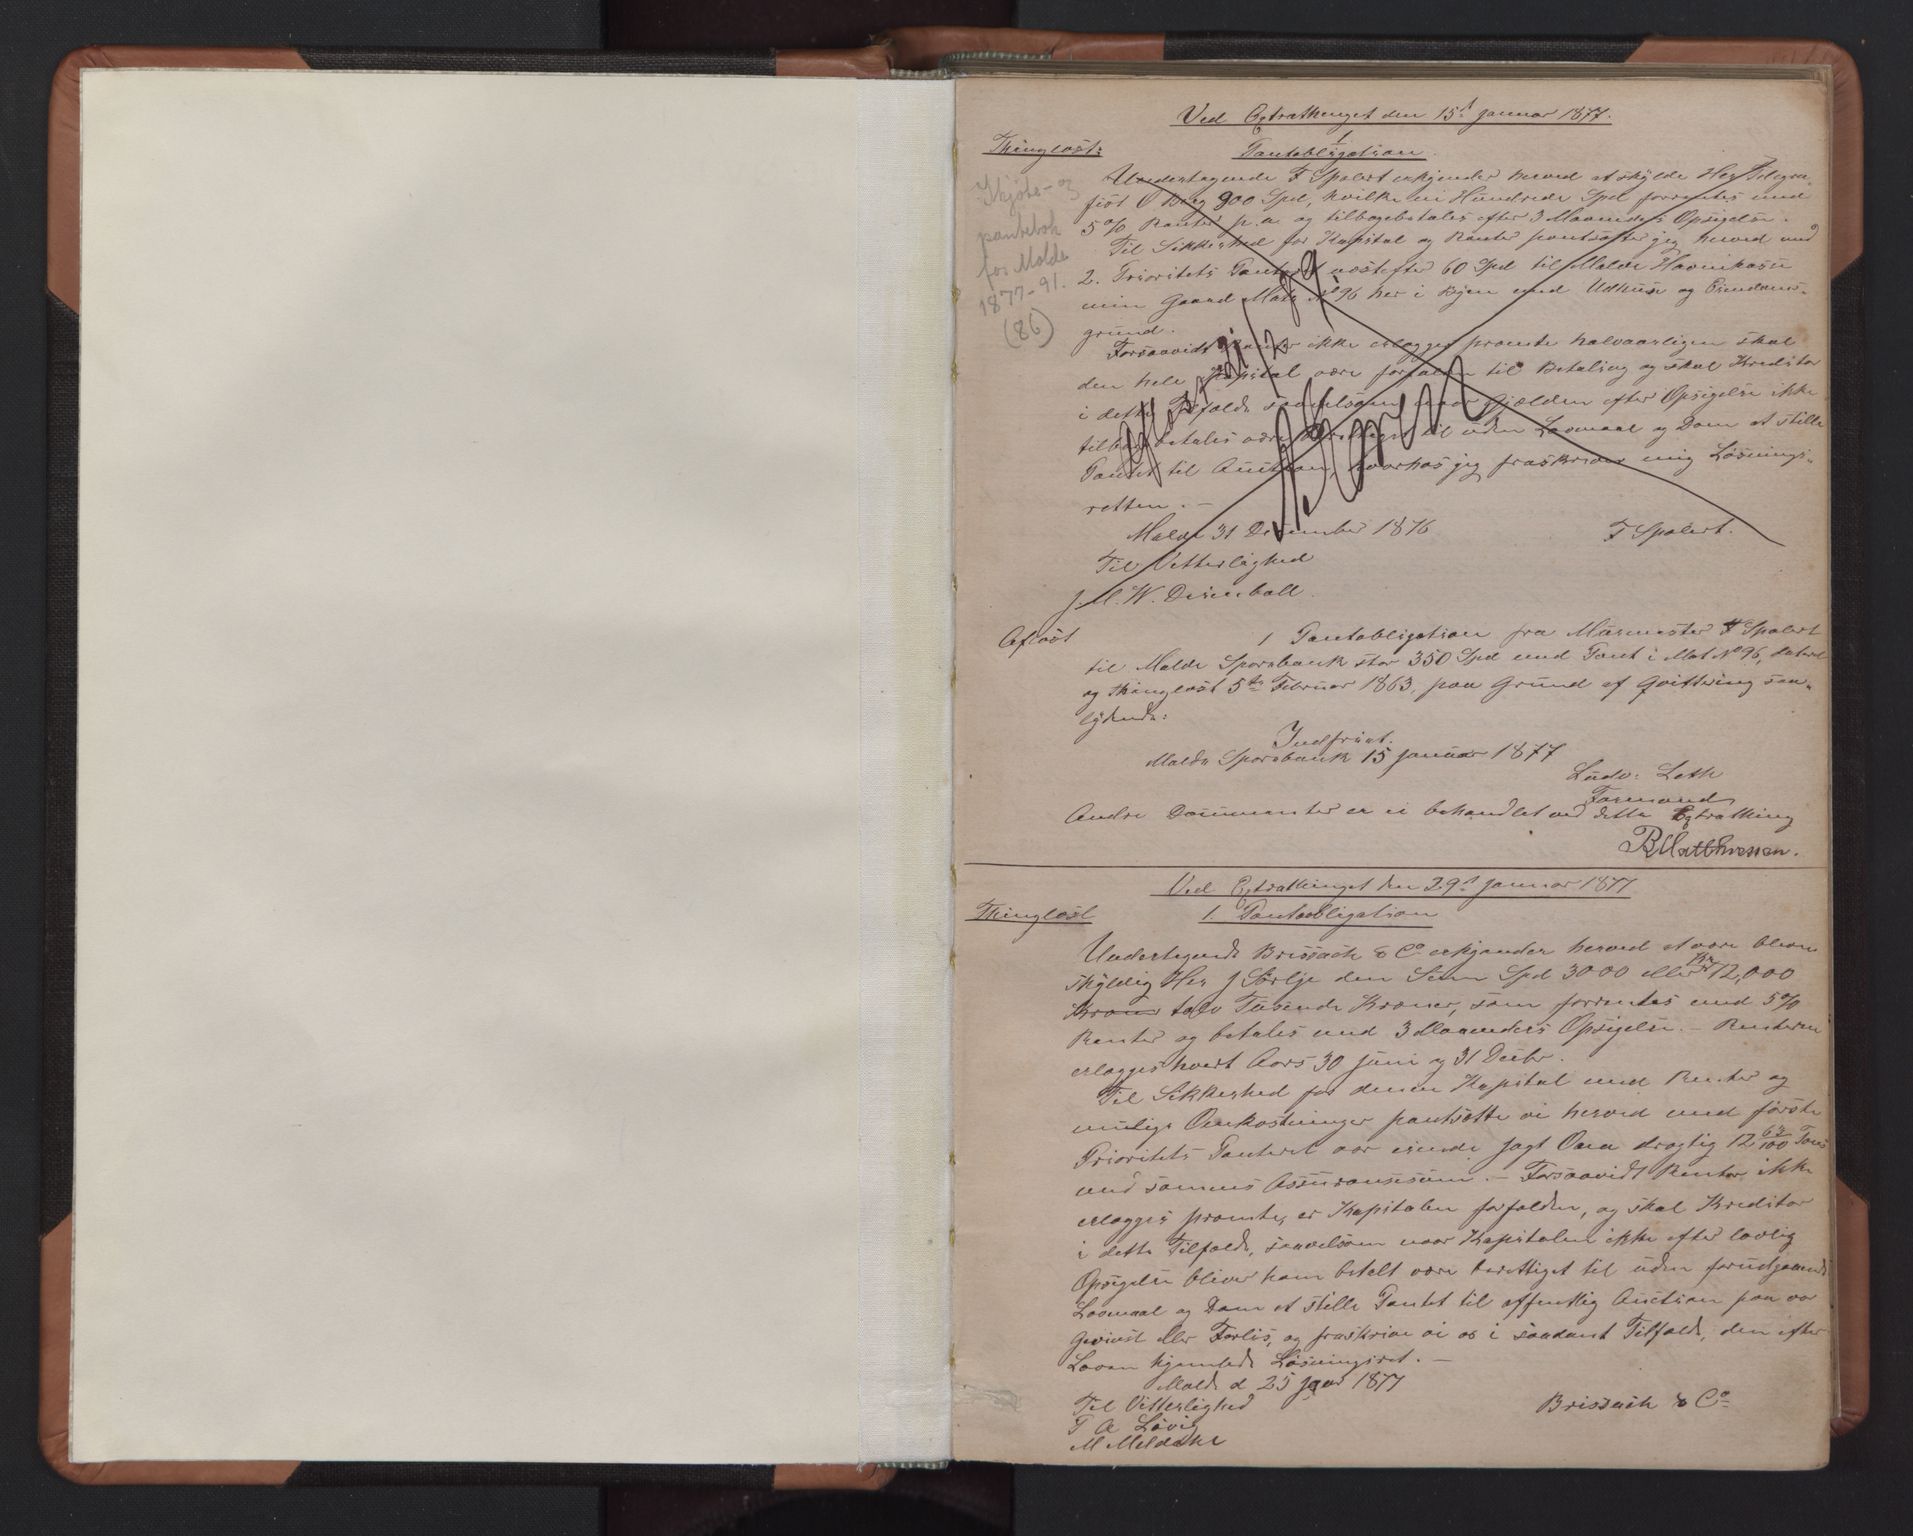 Ved Extrathinget den 15d Januar 1877.
Thinglæst:
1
Pantobligation.
Skjøte- og
pantebok
for Molde
1877-91.
(86)
Undertegnede F Spolert erkjender herved at skylde Her Telegra-
fist O Berg 900 Spd, hvilke ni Hundrede Spd forrentes med
5 % Renter p. a. og tilbagebetales efter 3 Maaneders Opsigelse.
Til Sikkerhed for Kapital og Renter pantsætter jeg herved med
2. Prioritets Panteret næstefter 60 Spd til Molde Havnekasse
min Gaard Matr No 96 her i Byen med Udhuse og Eiendoms-
grund.
Forsaavidt Renter ikke erlægges promte halvaarligen skal
den hele Kapital være forfalden til Betaling og skal Kreditor
i dette Tilfælde saavelsom naar Gjælden efter Opsigelse ikke
tilbagebetales være berettiget til uden Lovmaal og Dom at stille
Pantet til Auction, hvorhos jeg fraskriver mig Løsnings-
retten. —
Molde 31 December 1876
F Spolert.
Til Vitterlighed
J. M. W. Disenball.
Aflæst
1 Pantobligation fra Murmester F Spolert
til Molde Sparebank stor 350 Spd med Pant i Mat No 96, dateret
og thinglæst 5te Februar 1863, paa Grund af Qvittering saa-
lydende:
Indfriet.
Molde Sparebank 15 Januar 1877
Ludv: Leth
Formand
Andre Documenter er ei behandlet ved dette Extrathing
B Matthiessen.
Ved Extrathinget den 29d Januar 1877
Thinglæst
1. Pantobligation
Undertegnede Brissach & Co erkjender herved at være bleven
skyldig Her J Sørlje den Sum Spd 3000 eller Kr 12,000
Kroner tolv Tusende Kroner, som forrentes med 5 %
Renter og betales med 3 Maaneders Opsigelse. — Renterne
erlægges hvert Aars 30 Juni og 31 Decbr.
Til Sikkerhed for denne Kapital med Renter og
mulige Omkostninger pantsætte vi herved med første
Prioritets Panteret vor eiende Jagt Ona drægtig 12 63/100 Tons
med sammes Assurancesum. — Forsaavidt Renter ikke
erlægges promte, er Kapitalen forfalden, og skal Kreditor
i dette Tilfælde, saavelsom naar Kapitalen ikke efter lovlig
Opsigelse bliver ham betalt være berettiget til uden forudgaaende
Lovmaal og Dom at stille Pantet til offentlig Auction paa vor
Gevinst eller Forlis, og fraskrive vi os i saadant Tilfælde, den efter
Loven hjemlede Løsningsret. —
Molde d 25 Januar 1877
Til Vitterlighed
Brissach & Co
T A Løvig
M Meldahl